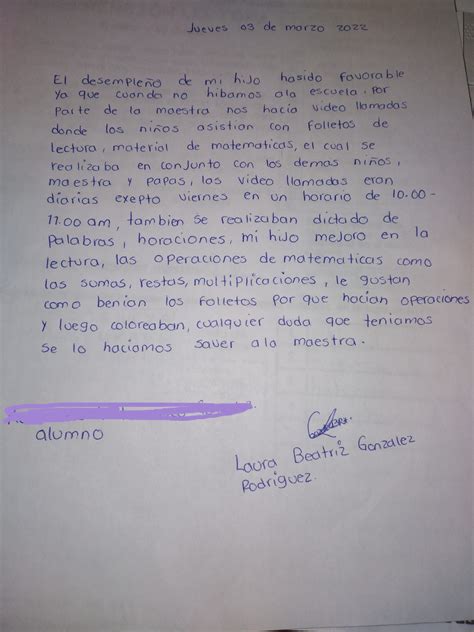 Jueves 03 de marzo 2022
El desempleño de mi hijo hasido favorable
Ya que cuando no hibamos ala escuela por
Parte de la maestra nos hacia video llamadas
donde los niños asistian con folletos de
lectura, material de matematicas, el cual se
realizaba en conjunto con los demas niños,
maestra y papas, las video llamadas eran
diarias exepto viernes en un horario de 10:00-
11:00 am, tambien se realizaban dictado de
palabras, horaciones, mi hijo mejoro en la
lectura, las operaciones de matematicas como
las sumas, restas, multiplicaciones, le gustan
como benian los folletos por que hacian operaciones
y luego coloreaban, cualquier duda que teniamos
se lo haciamos saver ala maestra.
alumno
Laura Beatriz Gonzalez
Rodriguez.